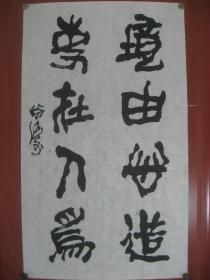 境由心造
事在人爲